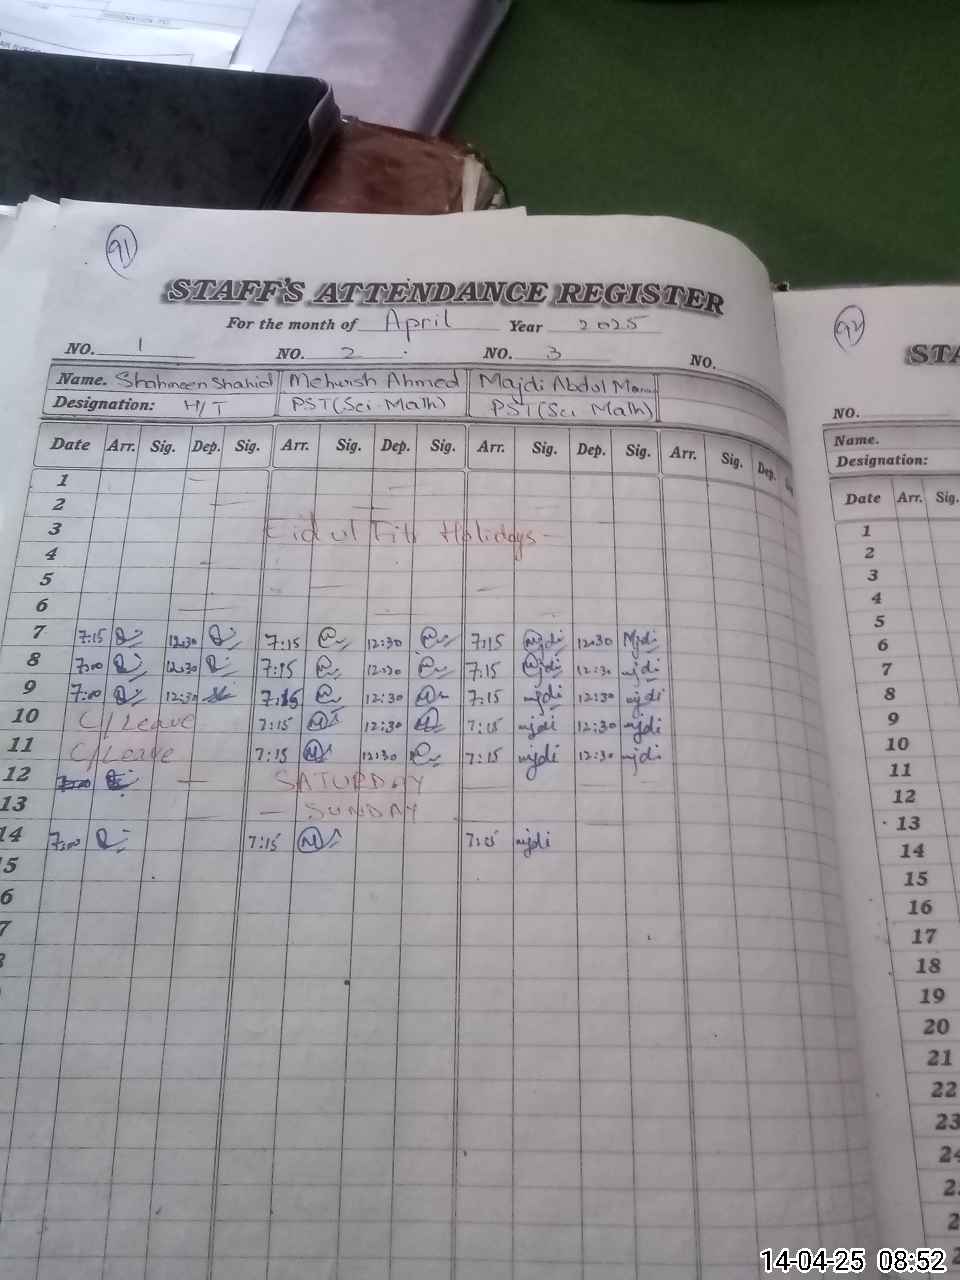 91
STAFF'S ATTENDANCE REGISTER
For the month of April Year 2025
NO. 1 NO. 2 NO. 3 NO.
Name. Shahneen Shahid Mehwish Ahmed Majdi Abdul
Designation: H/T PST(Sci-Math) PST(Sci Math)
Date Arr. Sig. Dep. Sig. Arr. Sig. Dep. Sig. Arr. Sig. Dep. Sig. Arr. Sig. Dep.
1
2
3 Eid ul Fitr Holidays -
4
5
6
7 7:15 12:30 7:15 12:30 7:15 Mjdi 12:30 Mjdi
8 7:00 12:30 7:15 12:30 7:15 Mjdi 12:30 mjdi
9 7:00 12:30 7:15 12:30 7:15 mjdi 12:30 mjdi
10 C/Leave 7:15 12:30 7:15 mjdi 12:30 mjdi
11 C/Leave 7:15 12:30 7:15 mjdi 12:30 mjdi
12 SATURDAY
13 — SUNDAY
14 7:00 7:15 7:15 mjdi
5
6
7
92
STA
NO.
Name.
Designation:
Date Arr. Sig.
1
2
3
4
5
6
7
8
9
10
11
12
13
14
15
16
17
18
19
20
21
22
23
24
2
2
14-04-25 08:52